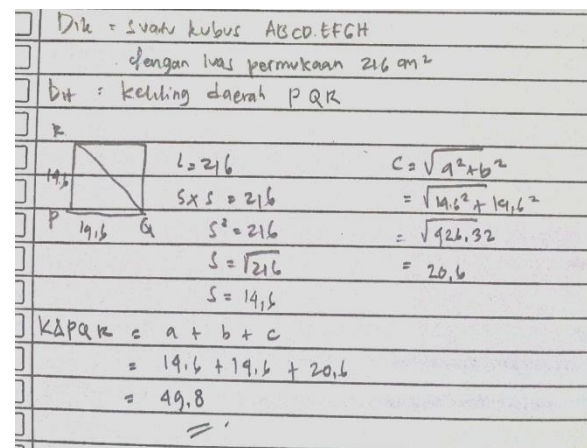 Dik : suatu kubus ABCD.EFGH
dengan luas permukaan 216 cm²
Dit : keliling daerah PQR
R
14,6
P 14,6 Q
L = 216
S x S = 216
S² = 216
S = √216
S = 14,6
C = √a²+b²
= √14.6²+14,6²
= √426,32
= 20,6
KΔPQR = a + b + c
= 14.6 + 14.6 + 20,6
= 49.8